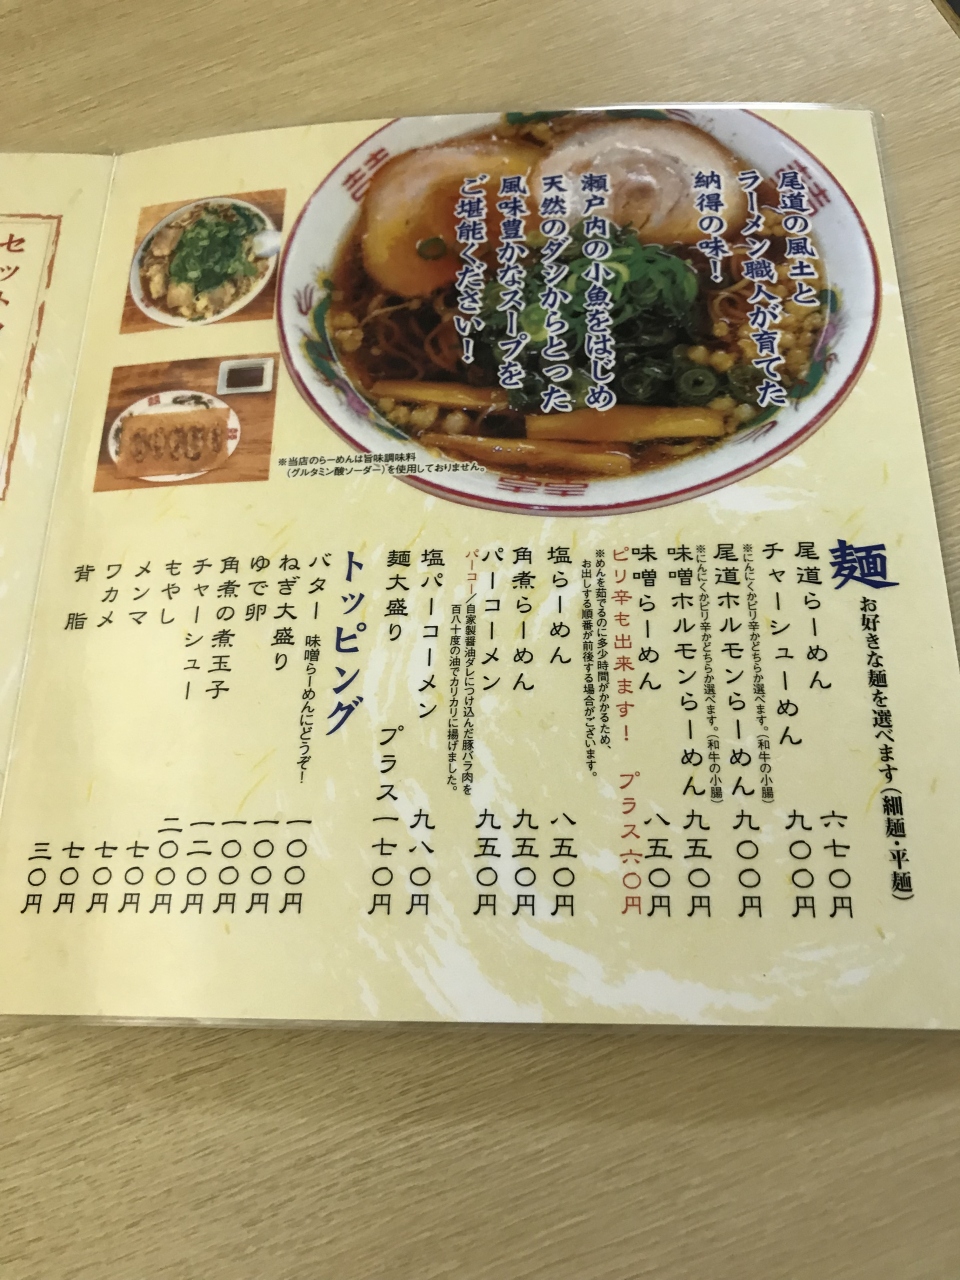 尾道の風土と
ラーメン職人が育てた
納得の味！
瀬戸内の小魚をはじめ
天然のダシからとった
風味豊かなスープを
ご堪能ください！
※当店のらーめんは旨味調味料
（グルタミン酸ソーダー）を使用しておりません。
麺 お好きな麺を選べます（細麺・平麺）
尾道らーめん 六七〇円
チャーシューめん 九〇〇円
※にんにくかピリ辛かどちらか選べます。（和牛の小腸）
尾道ホルモンらーめん 九〇〇円
※にんにくかピリ辛かどちらか選べます。（和牛の小腸）
味噌ホルモンらーめん 九五〇円
味噌らーめん 八五〇円
ピリ辛も出来ます！ プラス六〇円
※めんを茹でるのに多少時間がかかるため、
お出しする順番が前後する場合がございます。
塩らーめん 八五〇円
角煮らーめん 九五〇円
パーコーメン 九五〇円
パーコー／自家製醤油ダレにつけ込んだ豚バラ肉を
百八十度の油でカリカリに揚げました。
塩パーコーメン 九八〇円
麺大盛り プラス 一七〇円
トッピング
バター 味噌らーめんにどうぞ！ 一〇〇円
ねぎ大盛り 一〇〇円
ゆで卵 一〇〇円
角煮の煮玉子 一二〇円
チャーシュー 二〇〇円
もやし 七〇円
メンマ 七〇円
ワカメ 七〇円
背脂 三〇円
セット